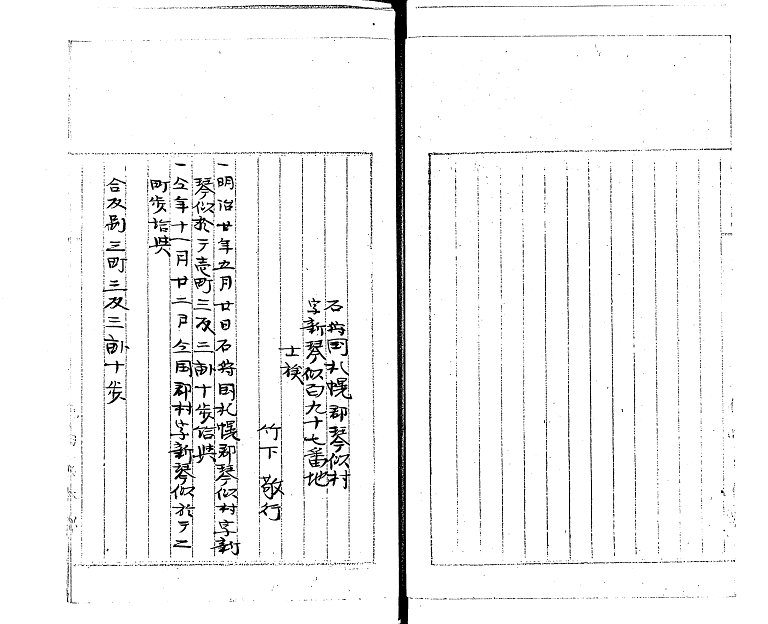 石狩国札幌郡琴似村
字新琴似百九十七番地
士族
竹下敬行
一明治廿年五月廿日石狩国札幌郡琴似村字新
琴似於テ壱町三反三畝十歩給与
一仝年十一月廿二日仝国郡村字新琴似於テ二
町歩給与
合反別三町三反三畝十歩